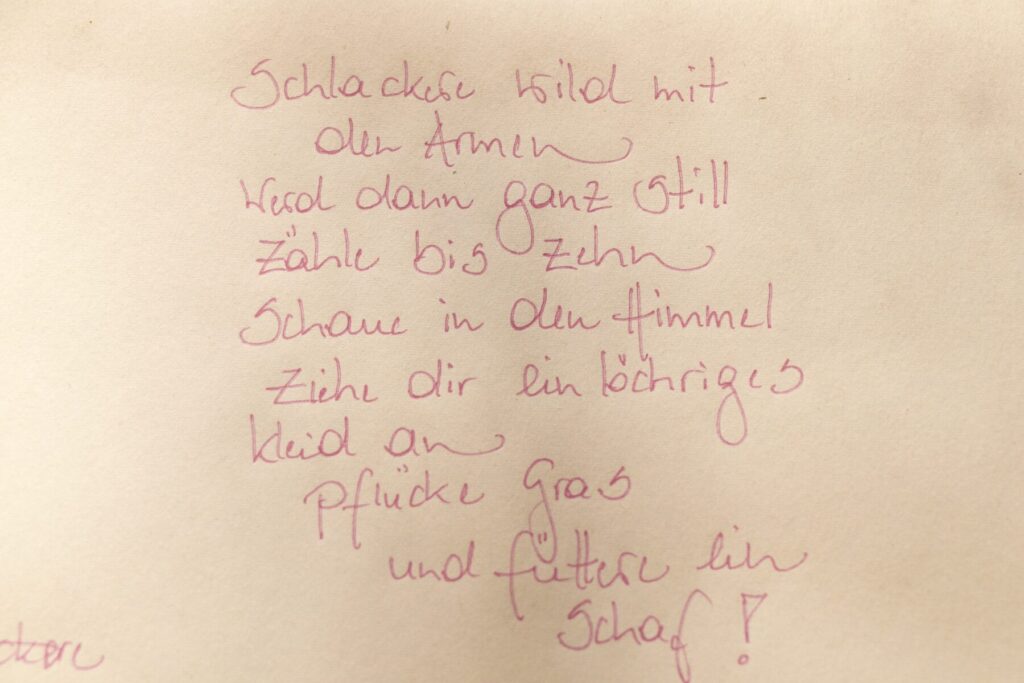 Schlackere wild mit
den Armen
Werd dann ganz still
Zähle bis zehn
Schaue in den Himmel
Ziehe dir ein löchriges
Kleid an
pflücke Gras
und füttere ein
Schaf!
ckere